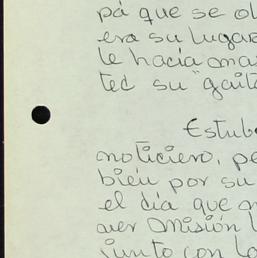 pá que se ol
era su lugar
le hacía ma
ted su "gait
Estub
noticiero, pe
bien por su
el día que
ver Omisión
junto con lo